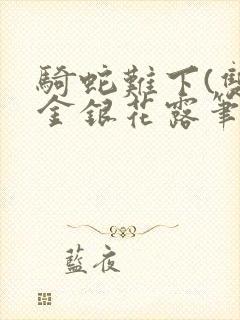 騎蛇難下(雙
金銀花露筆
藍夜